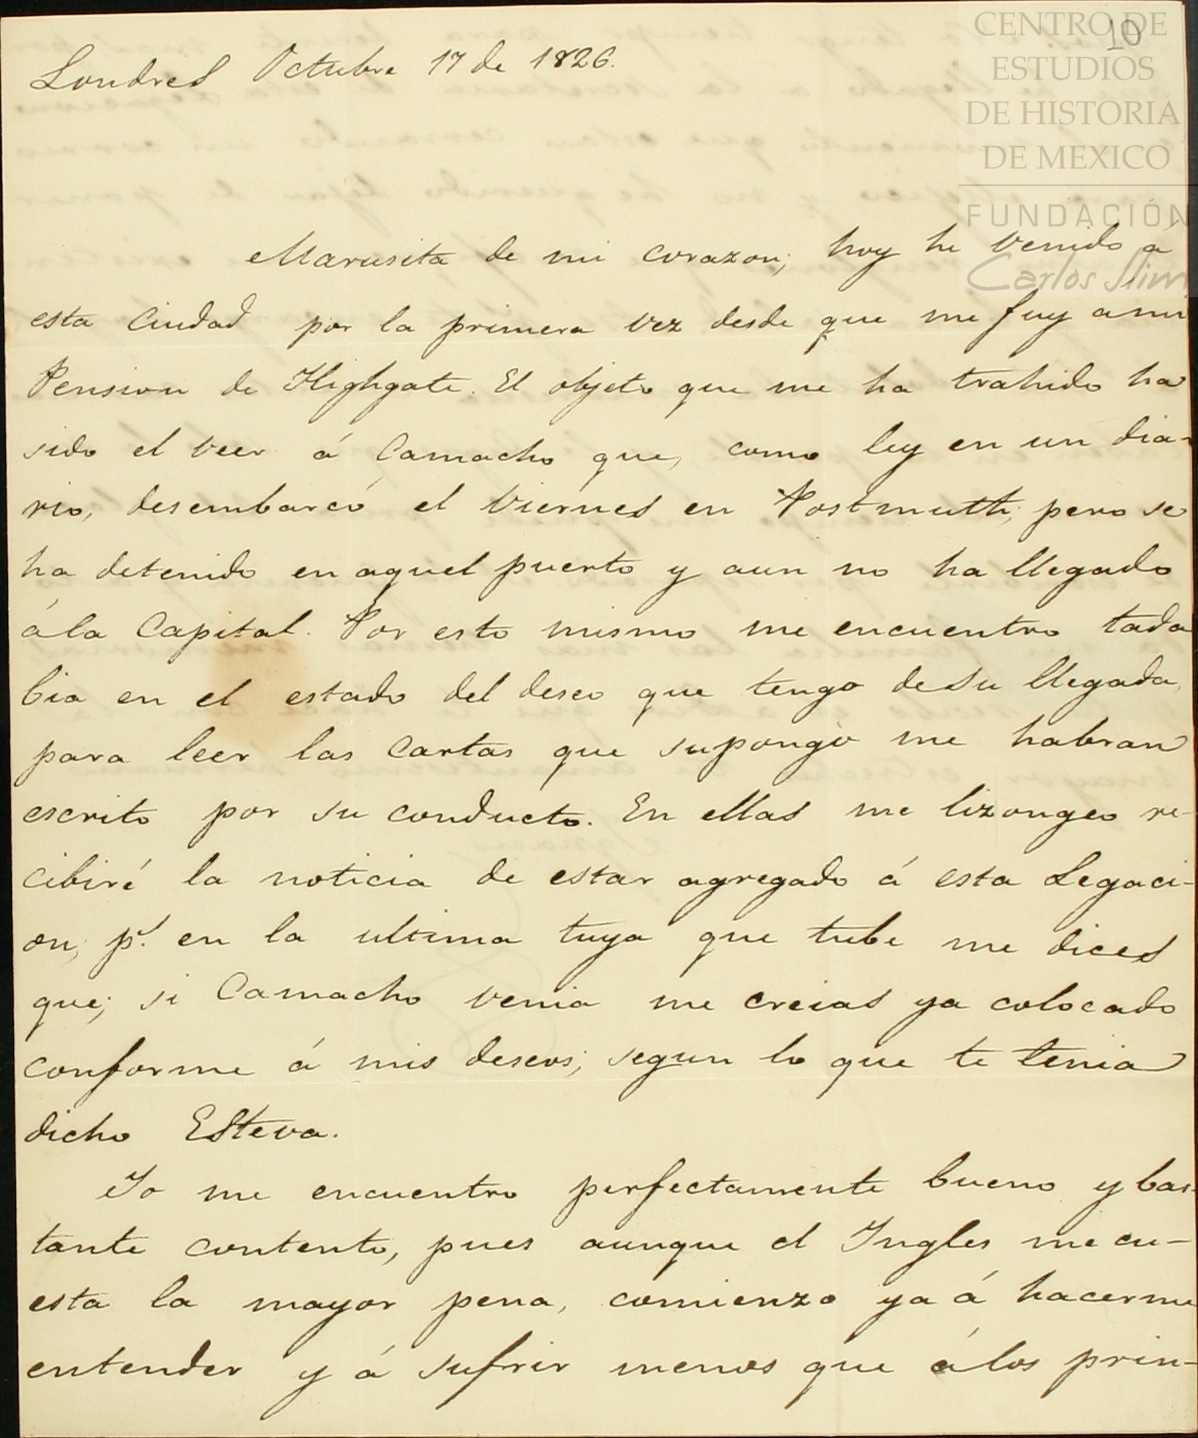 CENTRO DE
ESTUDIOS
DE HISTORIA
DE MEXICO
FUNDACIÓN
Carlos Slim
10
Londres Octubre 17 de 1826.
Marusita de mi corazon; hoy he venido á
esta Ciudad por la primera vez desde que me fuy a mi
Pension de Highgate. El objeto que me ha trahido ha
sido el veer á Camacho que, como ley en un dia-
rio, desembarcó el Viernes en Postmuth; pero se
ha detenido en aquel puerto y aun no ha llegado
á la Capital. Por esto mismo me encuentro toda
bia en el estado del deseo que tengo de su llegada,
para leer las Cartas que supongo me habran
escrito por su conducto. En ellas me lizongeo re-
cibiré la noticia de estar agregado á esta Legaci-
on, ps. en la ultima tuya que tube me dices
que; si Camacho venia me creias ya colocado
conforme á mis deseos; segun lo que te tenia
dicho Esteva.
Yo me encuentro perfectamente bueno y bas-
tante contento, pues aunque el Ingles me cu-
esta la mayor pena, comienzo ya á hacerme
entender y á sufrir menos que á los prin-